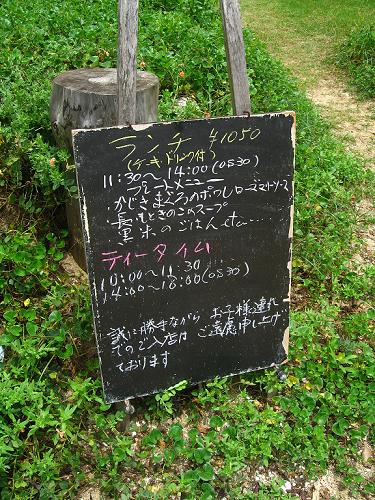 ランチ ¥1050
(ケーキ・ドリンク付)
11:30〜14:00(OS30)
プレートメニュー
・かじきまぐろのポワレローズマリーソース
・長いもときのこのスープ
・黒米のごはんetc...
ティータイム
10:00〜11:30
14:00〜18:00(OS30)
誠に勝手ながら お子様連れ
でのご入店は ご遠慮申し上げ
ております